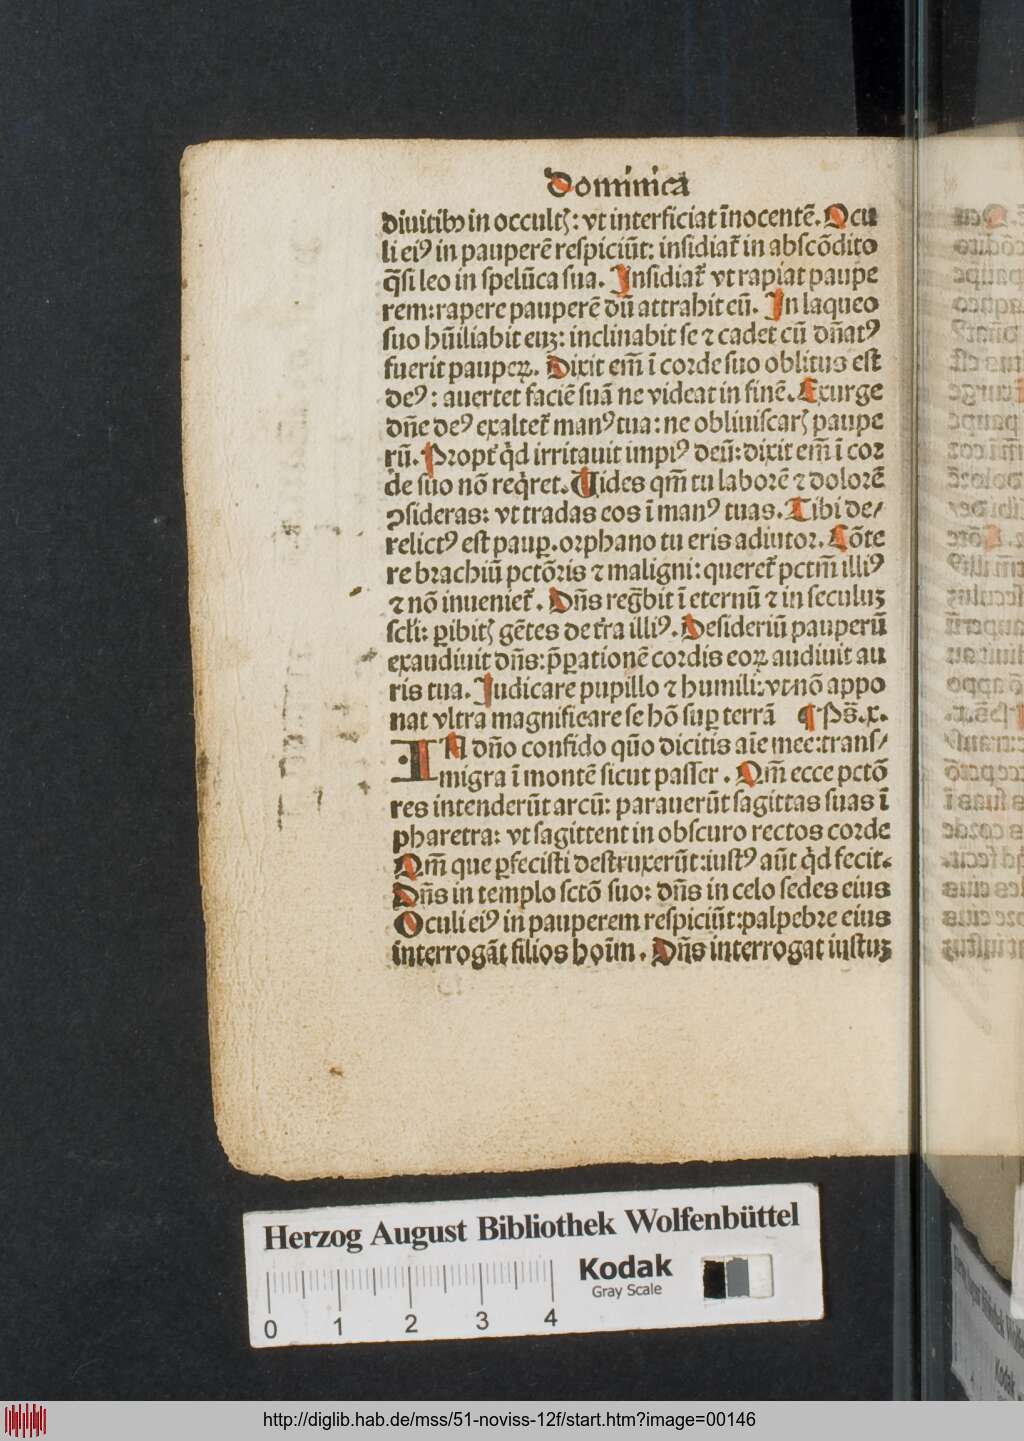 Dominica
diuitibꝰ in occultꝭ: vt interficiat īnocentē. Ocu
li eiꝰ in pauperē respiciūt: insidiat᷑ in abscōdito
q̄si leo in spelūca sua. Insidiat᷑ vt rapiat paupe
rem: rapere pauperē dū attrahit eū. In laqueo
suo hūiliabit euꝫ: inclinabit se ⁊ cadet cū dn̄atꝰ
fuerit paupeꝝ. Dixit em̄ ī corde suo oblitus est
deꝰ: auertet faciē suā ne videat in finē. Exurge
dn̄e deꝰ exaltet᷑ manꝰ tua: ne obliuiscarꝭ paupe
rū. Propt᷑ qd̓ irritauit impiꝰ deū: dixit em̄ ī cor
de suo nō req̓ret. Uides qm̄ tu laborē ⁊ dolorē
ꝯsideras: vt tradas eos ī manꝰ tuas. Tibi de/
relictꝰ est paup̲. orphano tu eris adiutor. Cōte
re brachiū pctōris ⁊ maligni: queret᷑ pctm̄ illiꝰ
⁊ nō inueniet᷑. Dn̄s reg̅bit ī eternū ⁊ in seculuꝫ
scl̓i: ꝑibitꝭ gētes de t᷑ra illiꝰ. Desideriū pauperū
exaudiuit dn̄s: p̄ꝑationē cordis eoꝝ audiuit au
ris tua. Iudicare pupillo ⁊ humili: vt nō appo
nat vltra magnificare se hō suꝑ terrā ¶ Ps̄. x.
IN dn̄o confido quō dicitis aīe mee: trans/
migra ī montē sicut passer. Qm̄ ecce pctō
res intenderūt arcū: parauerūt sagittas suas ī
pharetra: vt sagittent in obscuro rectos corde
Qm̄ que ꝑfecisti destruxerūt: iustꝰ aūt qd̓ fecit.
Dn̄s in templo sctō suo: dn̄s in celo sedes eius
Oculi eiꝰ in pauperem respiciūt: palpebre eius
interrogāt filios hoīm. Dn̄s interrogat iustuꝫ
Herzog August Bibliothek Wolfenbüttel
Kodak
Gray Scale
0 1 2 3 4
http://diglib.hab.de/mss/51-noviss-12f/start.htm?image=00146